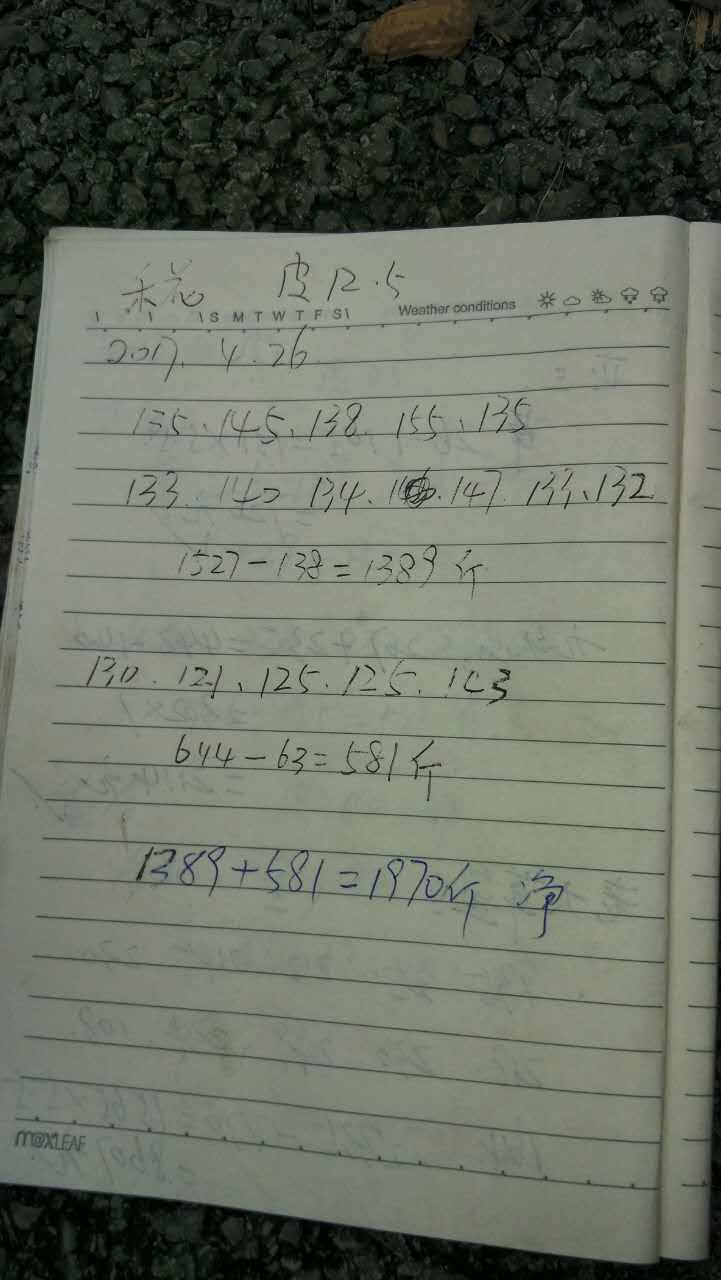 禾花 皮12.5
S M T W T F S Weather conditions
2017. 4.26
135、145、138、155、135
133. 140 134. 147. 133、132
1527-138=1389斤
130. 121、125. 125. 143
644-63=581斤
1389+581=1970斤 净
m@XLEAF